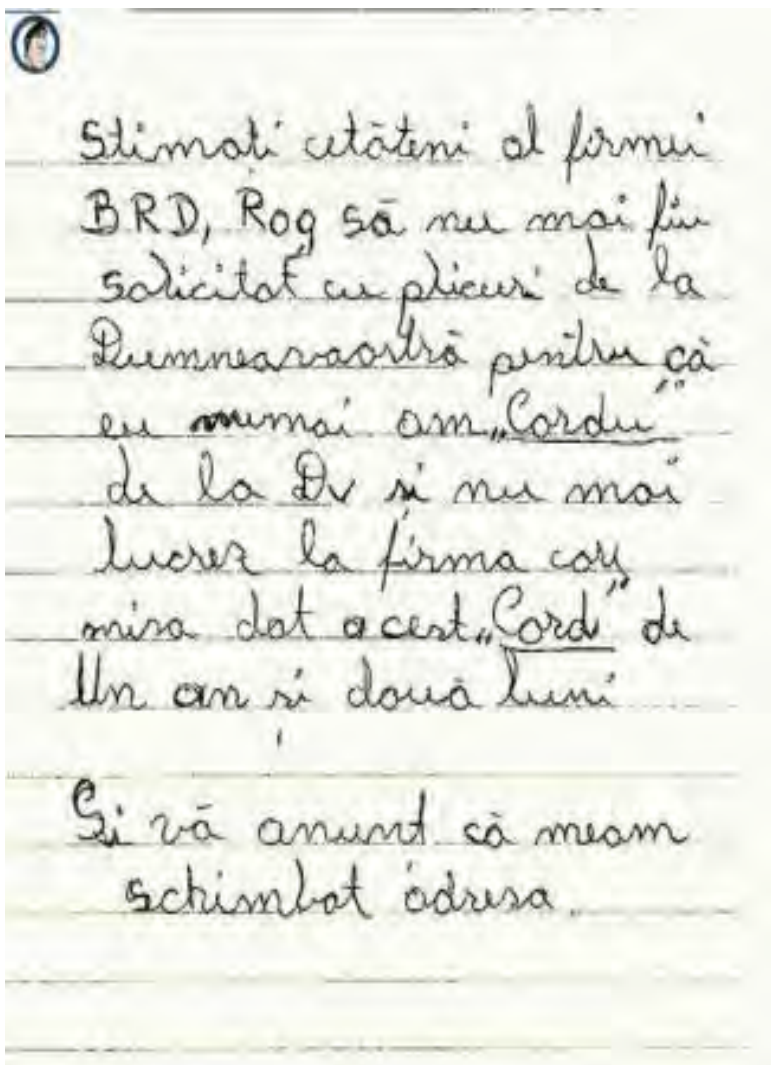 Stimati cetăteni al firmei
BRD, Rog să nu mai fiu
solicitat cu plicuri de la
Dumneavaostră pentru că
eu numai am „Cardu”
de la Dv și nu mai
lucrez la firma care
misa dat acest „Card” de
Un an și două luni
Și vă anunt că meam
schimbat adresa.